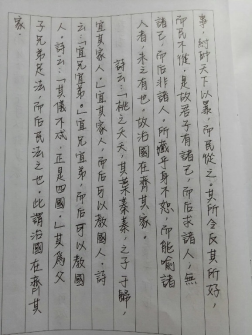 紂帥天下以暴,而民從之。其所令反其所好,
而民不從。是故君子有諸己,而后求諸人,無
諸己,而后非諸人。所藏乎身不恕,而能喻諸
人者,未之有也。故治國在齊其家。
詩云:「桃之夭夭,其葉蓁蓁。之子于歸,
宜其家人。」宜其家人,而后可以教國人。詩
云:「宜兄宜弟。」宜兄宜弟,而后可以教國
人。詩云:「其儀不忒,正是四國。」其為父
子兄弟足法,而后民法之也。此謂治國在齊其
家